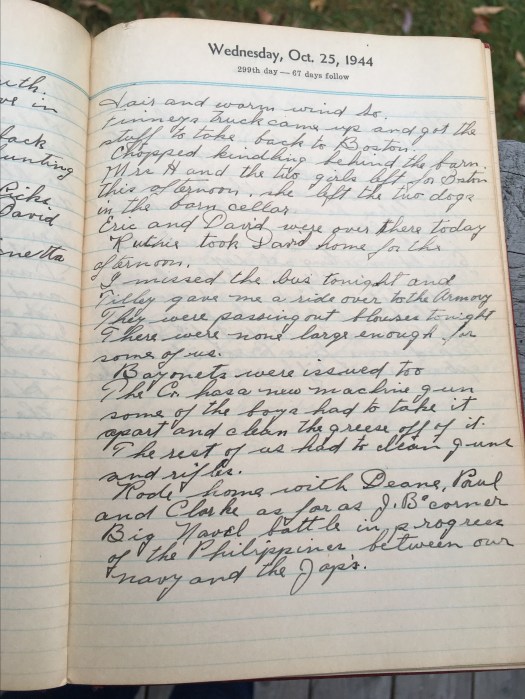 uth.
ve in
ack
unting
Ricks.
David
netta
Wednesday, Oct. 25, 1944
299th day — 67 days follow
Fair and warm wind So.
Finneys truck came up and got the
stuff to take back to Boston
Chopped kindling behind the barn.
Mrs H and the two girls left for Boston
this afternoon. she left the two dogs
in the barn cellar
Eric and David were over there today
Ruthie took David home for the
afternoon.
I missed the bus tonight and
Tilley gave me a ride over to the Armory
They were passing out blouses tonight
There were none large enough for
some of us.
Bayonets were issued too
The Co. has a new machine gun
some of the boys had to take it
apart and clean the greese off of it.
The rest of us had to clean guns
and rifles.
Rode home with Deane, Paul
and Clarke as far as J. B's corner
Big Navel battle in progrees
of the Philippines between our
navy and the Jap's.